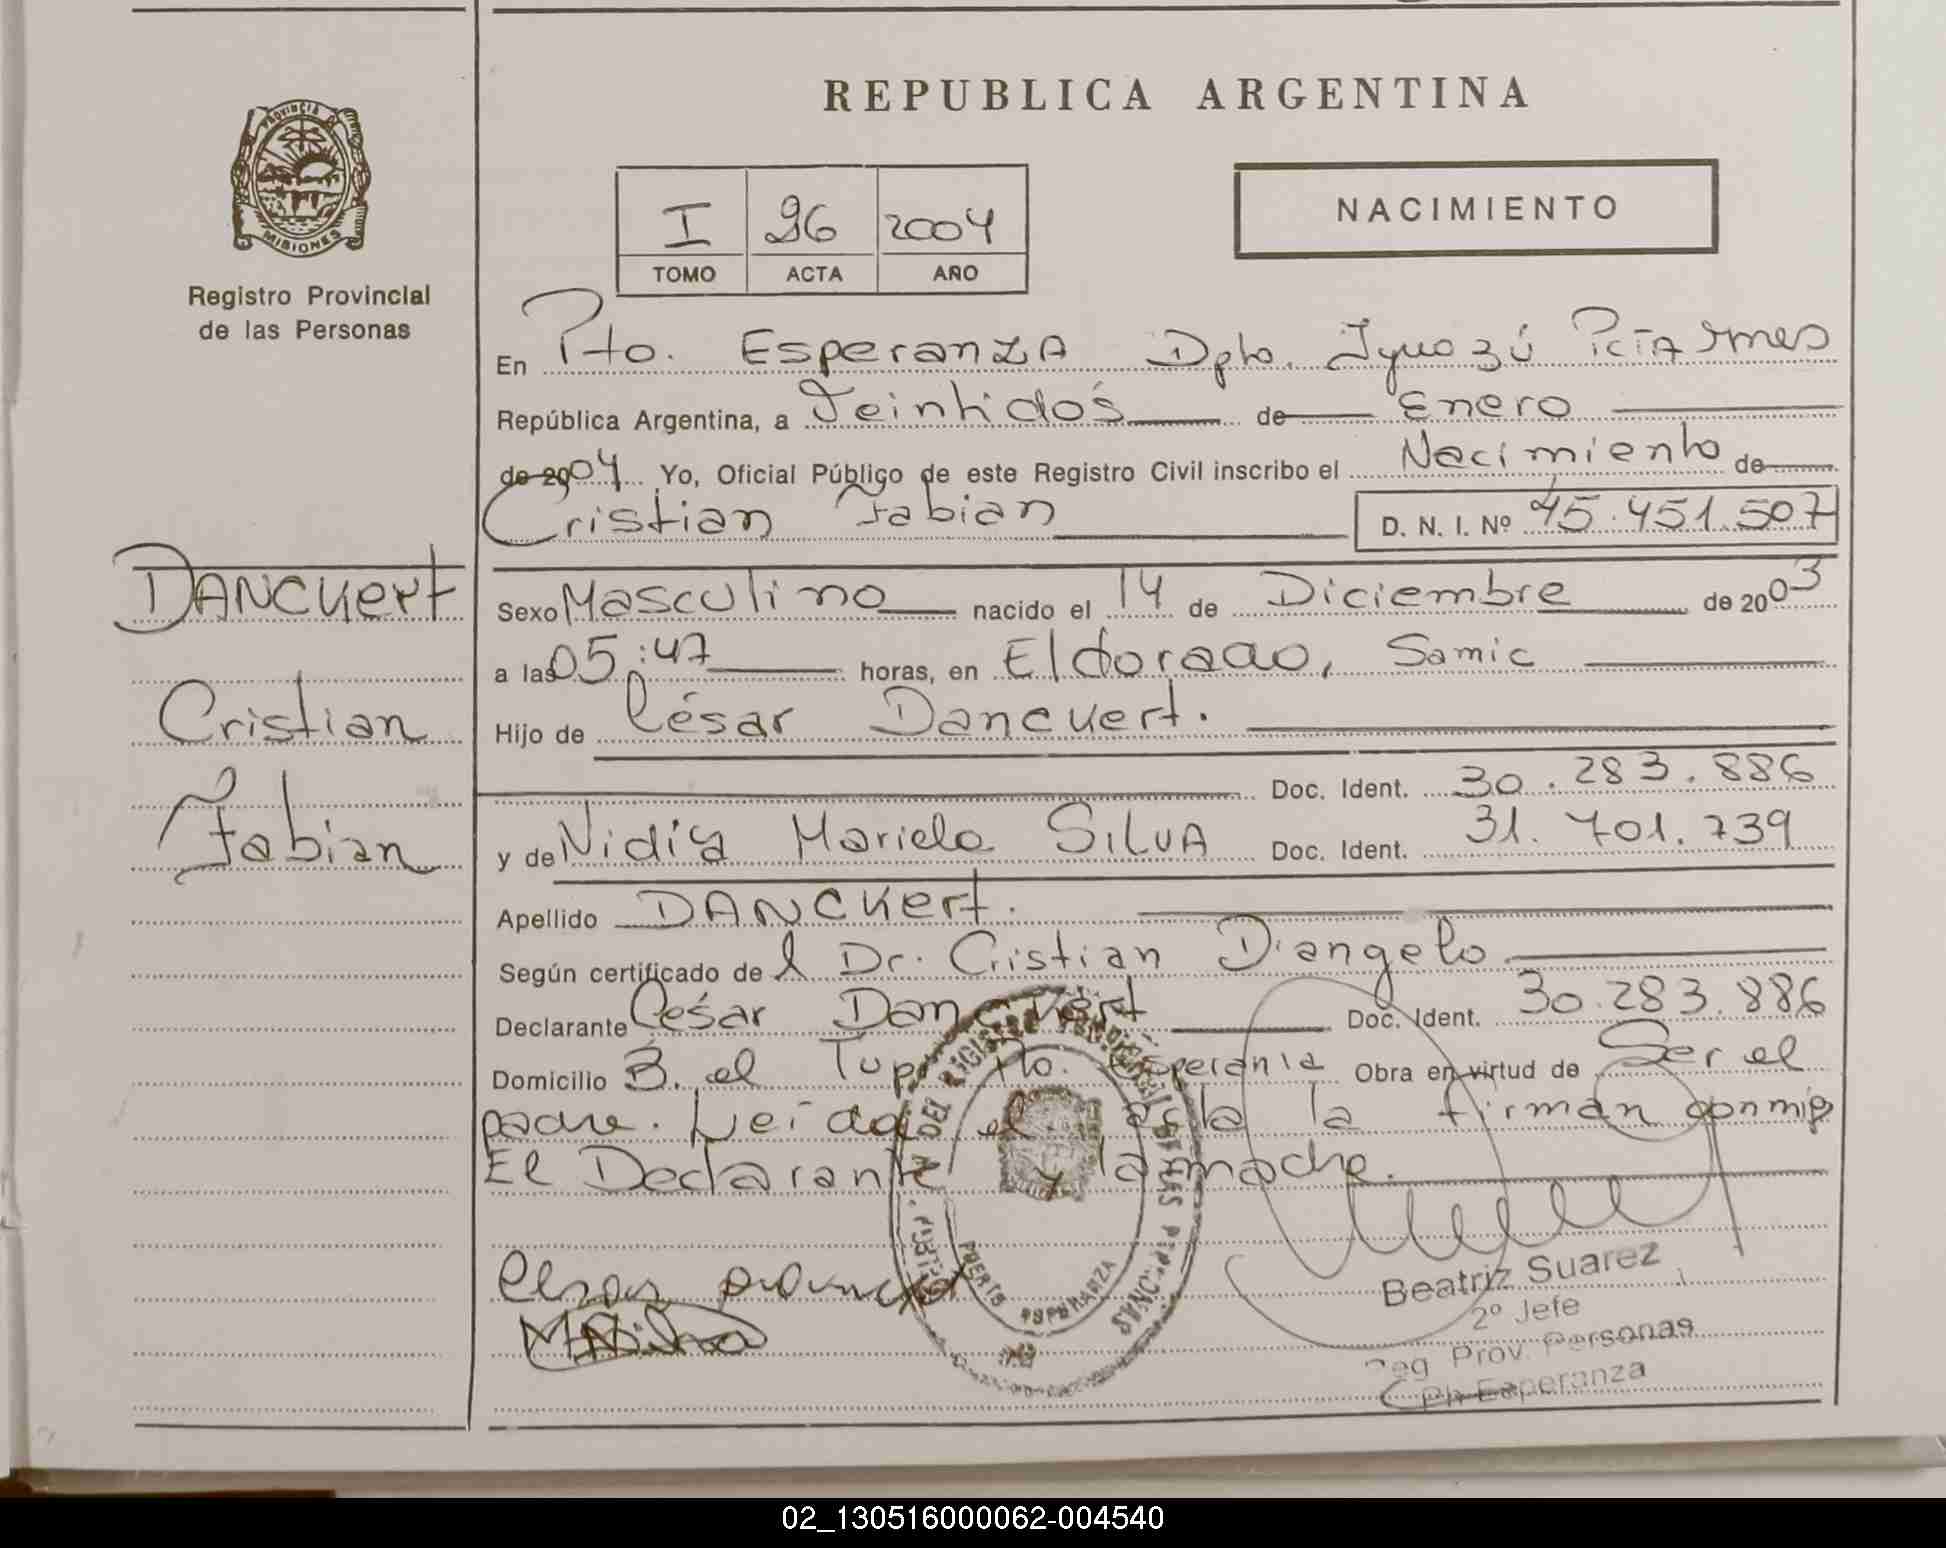 REPUBLICA ARGENTINA
PROVINCIA DE
MISIONES
Registro Provincial
de las Personas
I 96 2004
TOMO ACTA AÑO
NACIMIENTO
En Pto. Esperanza Dpto. Iguazú Pcia Mnes
República Argentina, a Veintidós de Enero
de 2004 Yo, Oficial Público de este Registro Civil inscribo el Nacimiento de
Cristian Fabian D. N. I. Nº 45.451.507
DANCKert
Cristian
Fabian
Sexo Masculino nacido el 14 de Diciembre de 2003
a las 05:47 horas, en Eldorado, Samic
Hijo de César Danckert.
Doc. Ident. 30.283.886
y de Nidia Mariela SILVA Doc. Ident. 31.701.739
Apellido DANCKert.
Según certificado de l Dr. Cristian D'angelo
Declarante César Danckert Doc. Ident. 30.283.886
Domicilio B. el Tup Pto. Esperanza Obra en virtud de Ser el
padre. Leida el acta la firman conmigo
El Declarante y la madre.
PUERTO ESPERANZA
Beatriz Suarez
2º Jefe
Reg Prov. Personas
Pto Esperanza
02_130516000062-004540